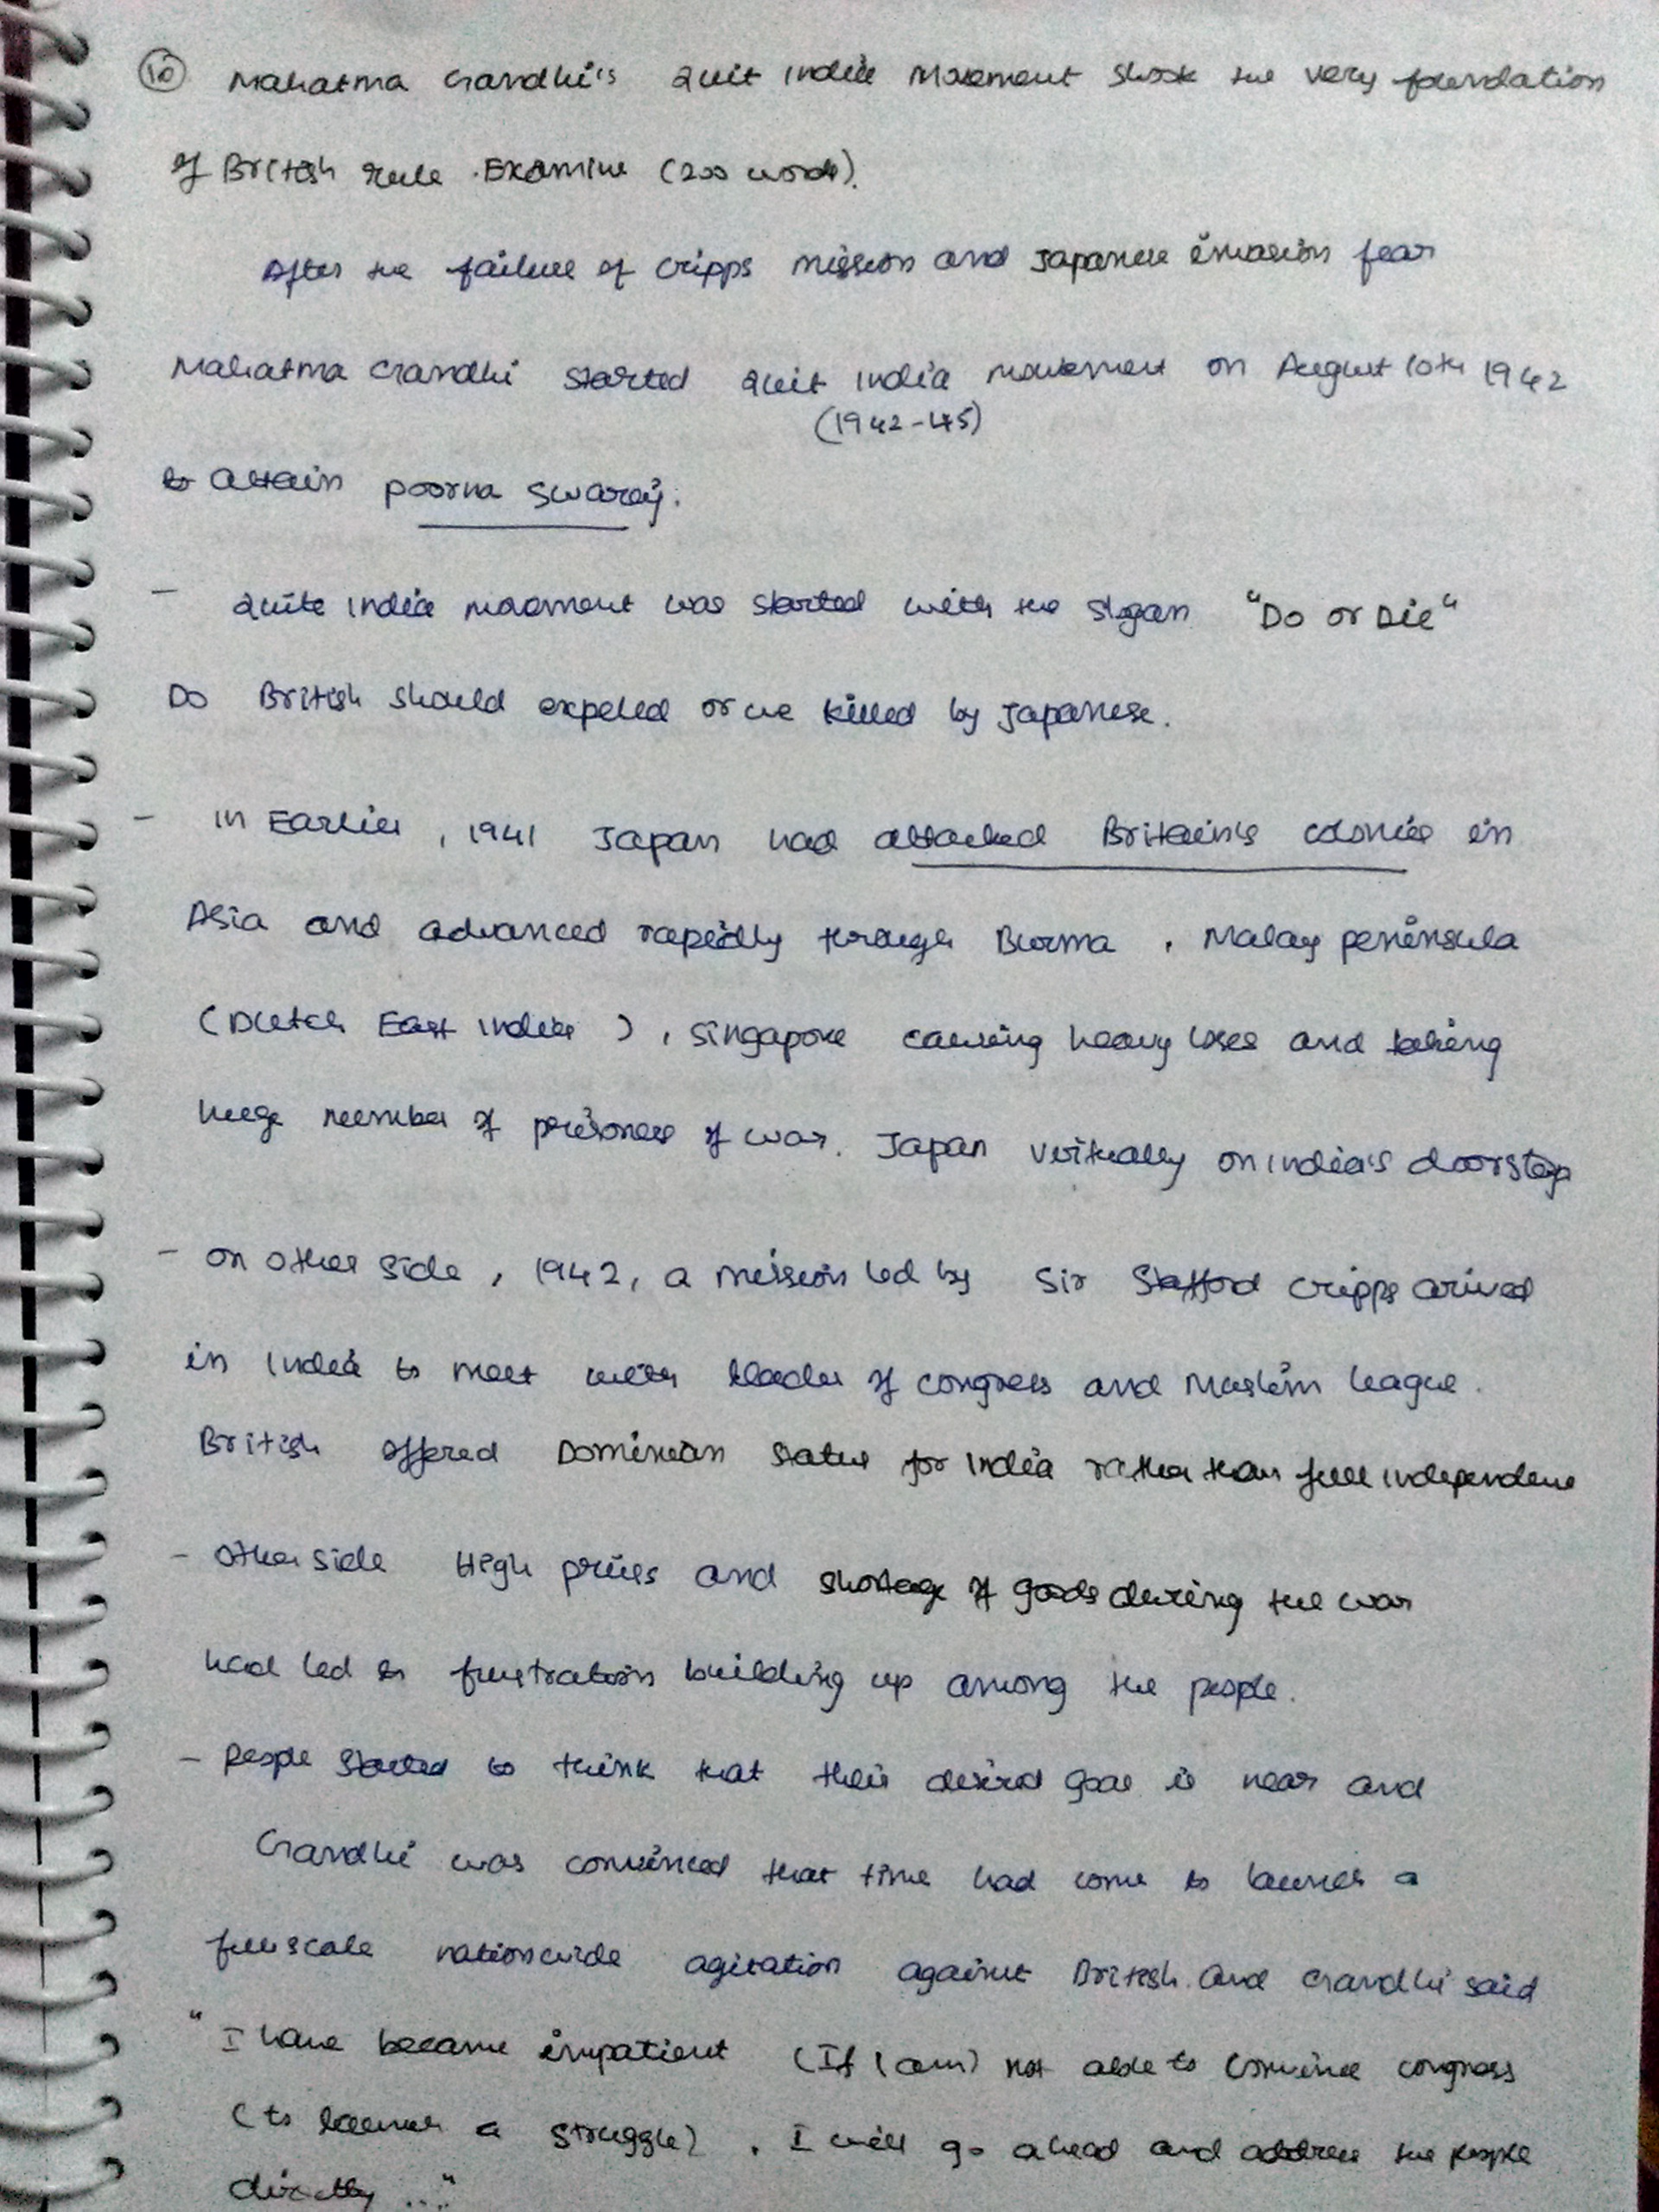 10 Mahatma Gandhi's Quit India Movement shook the very foundation
of British rule. Examine (200 words).
After the failure of Cripps mission and Japanese invasion fear
Mahatma Gandhi started Quit India movement on August 10th 1942
(1942-45)
to attain poorna swaraj.
- Quite India movement was started with the slogan "Do or Die"
Do British should expeled or we killed by Japanese.
- In Earlier, 1941 Japan had attacked Britain's colonies in
Asia and advanced rapidly through Burma, Malay peninsula
(Dutch East Indies), Singapore causing heavy loses and taking
huge number of prisoners of war. Japan virtually on India's doorstep
- on other side, 1942, a mission led by Sir Stafford Cripps arived
in India to meet with leader of congress and Muslim league.
British offered Dominion status for India rather than full independence
- Other side High prices and shortage of goods during the war
had led to frustration building up among the people.
- People started to think that their desired goal is near and
Gandhi was convinced that time had come to launch a
full scale nationwide agitation against British. And Gandhi said
"I have became impatient (If I am) not able to convince congress
(to launch a struggle), I will go ahead and address the people
directly ..."